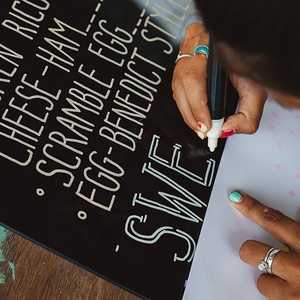 RICO
CHEESE-HAM
• SCRAMBLE EGG
• EGG-BENEDICT
- SWE